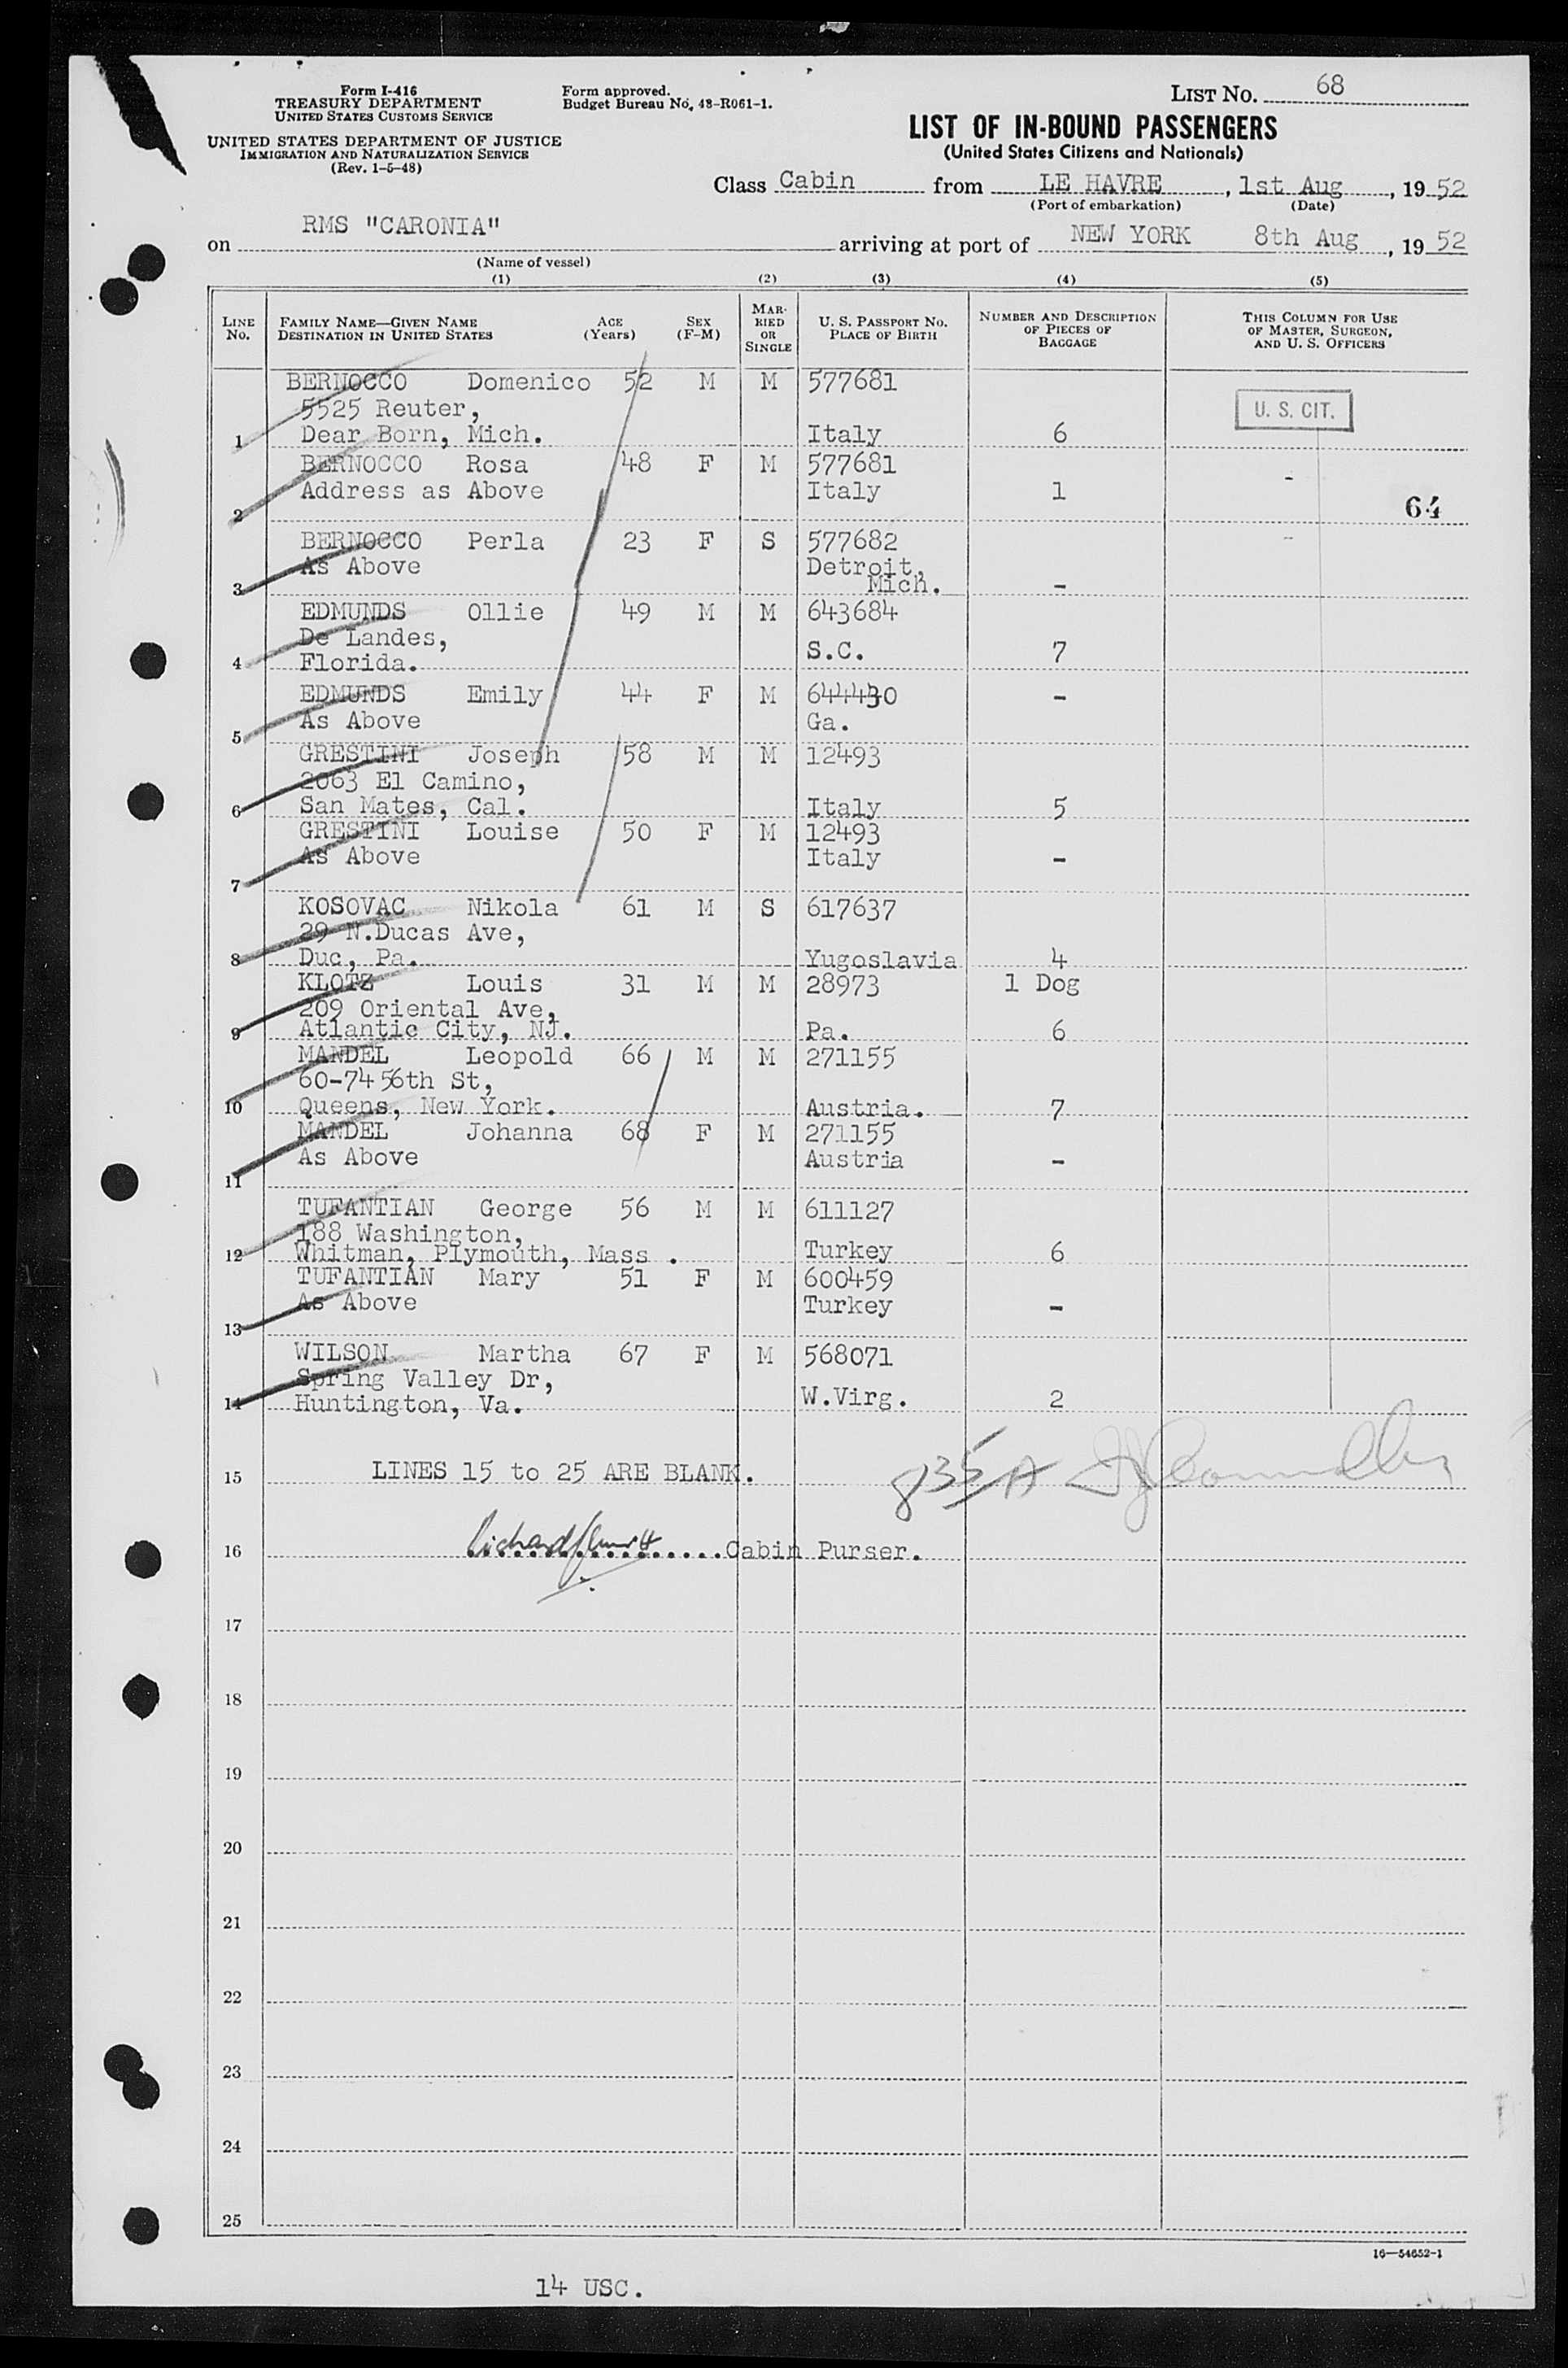 Form I-416
TREASURY DEPARTMENT
UNITED STATES CUSTOMS SERVICE
UNITED STATES DEPARTMENT OF JUSTICE
IMMIGRATION AND NATURALIZATION SERVICE
(Rev. 1-5-48)
Form approved.
Budget Bureau No. 48-R061-1.
LIST NO. 68
LIST OF IN-BOUND PASSENGERS
(United States Citizens and Nationals)
Class Cabin from LE HAVRE, 1st Aug, 1952
(Port of embarkation) (Date)
on RMS "CARONIA" arriving at port of NEW YORK 8th Aug, 1952
(Name of vessel)
(1) (2) (3) (4) (5)
LINE NO. FAMILY NAME—GIVEN NAME DESTINATION IN UNITED STATES AGE (Years) SEX (F-M) MARRIED OR SINGLE U. S. PASSPORT NO. PLACE OF BIRTH NUMBER AND DESCRIPTION OF PIECES OF BAGGAGE THIS COLUMN FOR USE OF MASTER, SURGEON, AND U. S. OFFICERS
BERNOCCO Domenico 52 M M 577681
5525 Reuter, U. S. CIT.
1 Dear Born, Mich. Italy 6
BERNOCCO Rosa 48 F M 577681 -
Address as Above Italy 1
2 64
BERNOCCO Perla 23 F S 577682 -
As Above Detroit,
3 Mich. -
EDMUNDS Ollie 49 M M 643684
De Landes,
4 Florida. S.C. 7
EDMUNDS Emily 44 F M 644430 -
As Above Ga.
5
GRESTINI Joseph 58 M M 12493
2063 El Camino,
6 San Mates, Cal. Italy 5
GRESTINI Louise 50 F M 12493
As Above Italy -
7
KOSOVAC Nikola 61 M S 617637
29 N.Ducas Ave,
8 Duc, Pa. Yugoslavia 4
KLOTZ Louis 31 M M 28973 1 Dog
209 Oriental Ave,
9 Atlantic City, NJ. Pa. 6
MANDEL Leopold 66 M M 271155
60-74 56th St,
10 Queens, New York. Austria. 7
MANDEL Johanna 68 F M 271155
As Above Austria -
11
TUFANTIAN George 56 M M 611127
188 Washington,
12 Whitman, Plymouth, Mass . Turkey 6
TUFANTIAN Mary 51 F M 600459
As Above Turkey -
13
WILSON Martha 67 F M 568071
Spring Valley Dr,
14 Huntington, Va. W.Virg. 2
15 LINES 15 to 25 ARE BLANK. 835 A
16 Richard ..................Cabin Purser.
17
18
19
20
21
22
23
24
25
16—54652-1
14 USC.